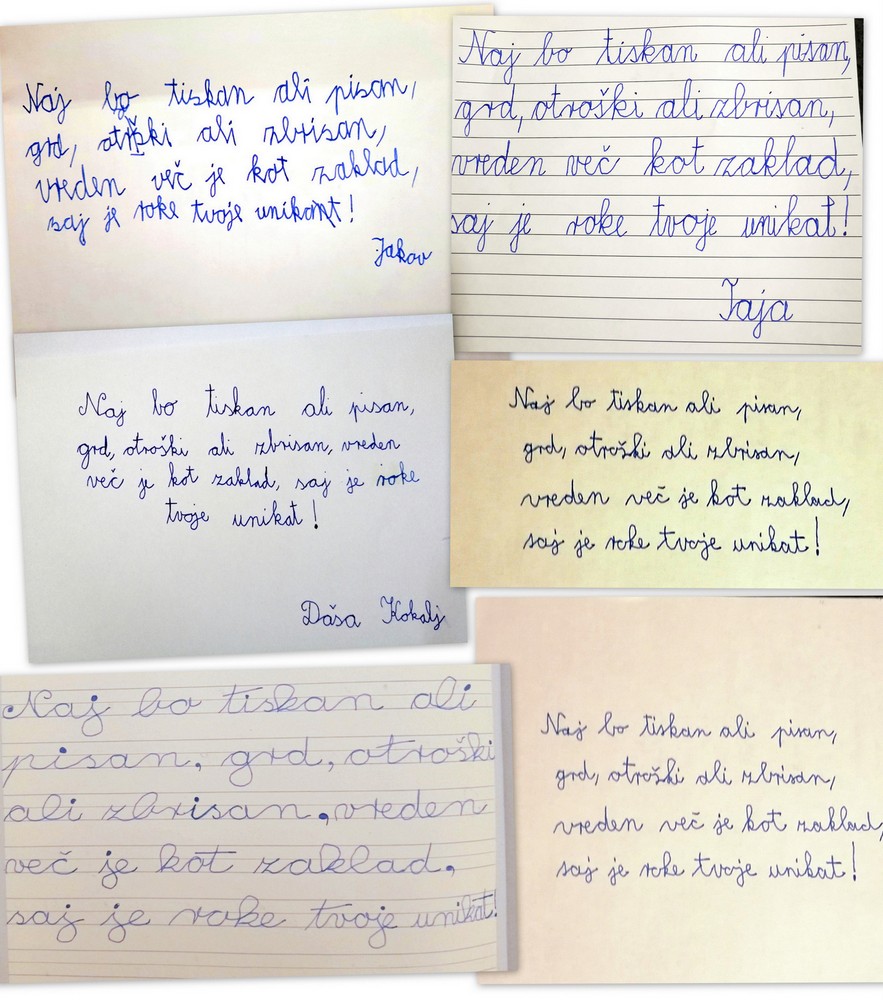 Naj bo tiskan ali pisan,
grd, otroški ali zbrisan,
vreden več je kot zaklad,
saj je roke tvoje unikat!
Jakov
Naj bo tiskan ali pisan,
grd, otroški ali zbrisan,
vreden več kot zaklad,
saj je roke tvoje unikat!
Taja
Naj bo tiskan ali pisan,
grd, otroški ali zbrisan, vreden
več je kot zaklad, saj je roke
tvoje unikat!
Daša Kokalj
Naj bo tiskan ali pisan,
grd, otroški ali zbrisan,
vreden več je kot zaklad,
saj je roke tvoje unikat!
Naj bo tiskan ali
pisan, grd, otroški
ali zbrisan, vreden
več je kot zaklad,
saj je roke tvoje unikat!
Naj bo tiskan ali pisan,
grd, otroški ali zbrisan,
vreden več je kot zaklad,
saj je roke tvoje unikat!